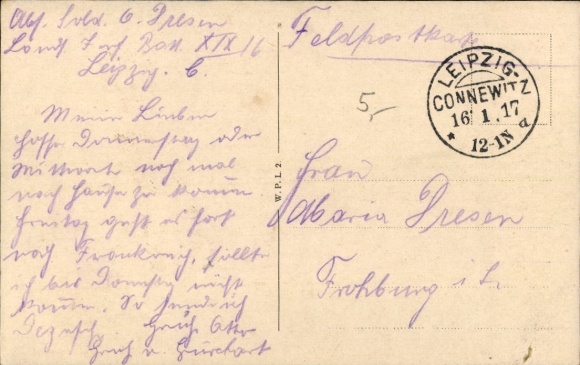 Abs. Sold. O. Dresen
Landst. Inf. Batt. XIX 16
Leipzig. C.
Feldpostkarte
LEIPZIG-
CONNEWITZ
16 1.17
12-1N
* a
5,-
Meine Lieben
hoffe Donnerstag oder
Mittwoch noch mal
nach Hause zu kommen
Freitag geht es fort
nach Frankreich, sollte
ich bis Donnerstag nicht
kommen. So
Gruß Otto
Gruß a.
W.P.L 2
Frau
Maria Dresen
Frohburg i. S.